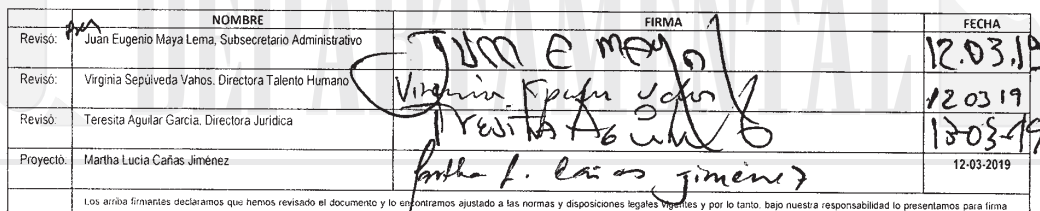 NOMBRE FIRMA FECHA
Revisó: Juan Eugenio Maya Lema, Subsecretario Administrativo Juan E Maya 12.03.19
Revisó: Virginia Sepúlveda Vahos, Directora Talento Humano Virginia Sepulveda Vahos 12 03 19
Revisó: Teresita Aguilar García, Directora Jurídica Teresita Aguilar G 13-03-19
Proyectó: Martha Lucía Cañas Jiménez Martha L. Cañas Jiménez 12-03-2019
Los arriba firmantes declaramos que hemos revisado el documento y lo encontramos ajustado a las normas y disposiciones legales vigentes y por lo tanto, bajo nuestra responsabilidad lo presentamos para firma